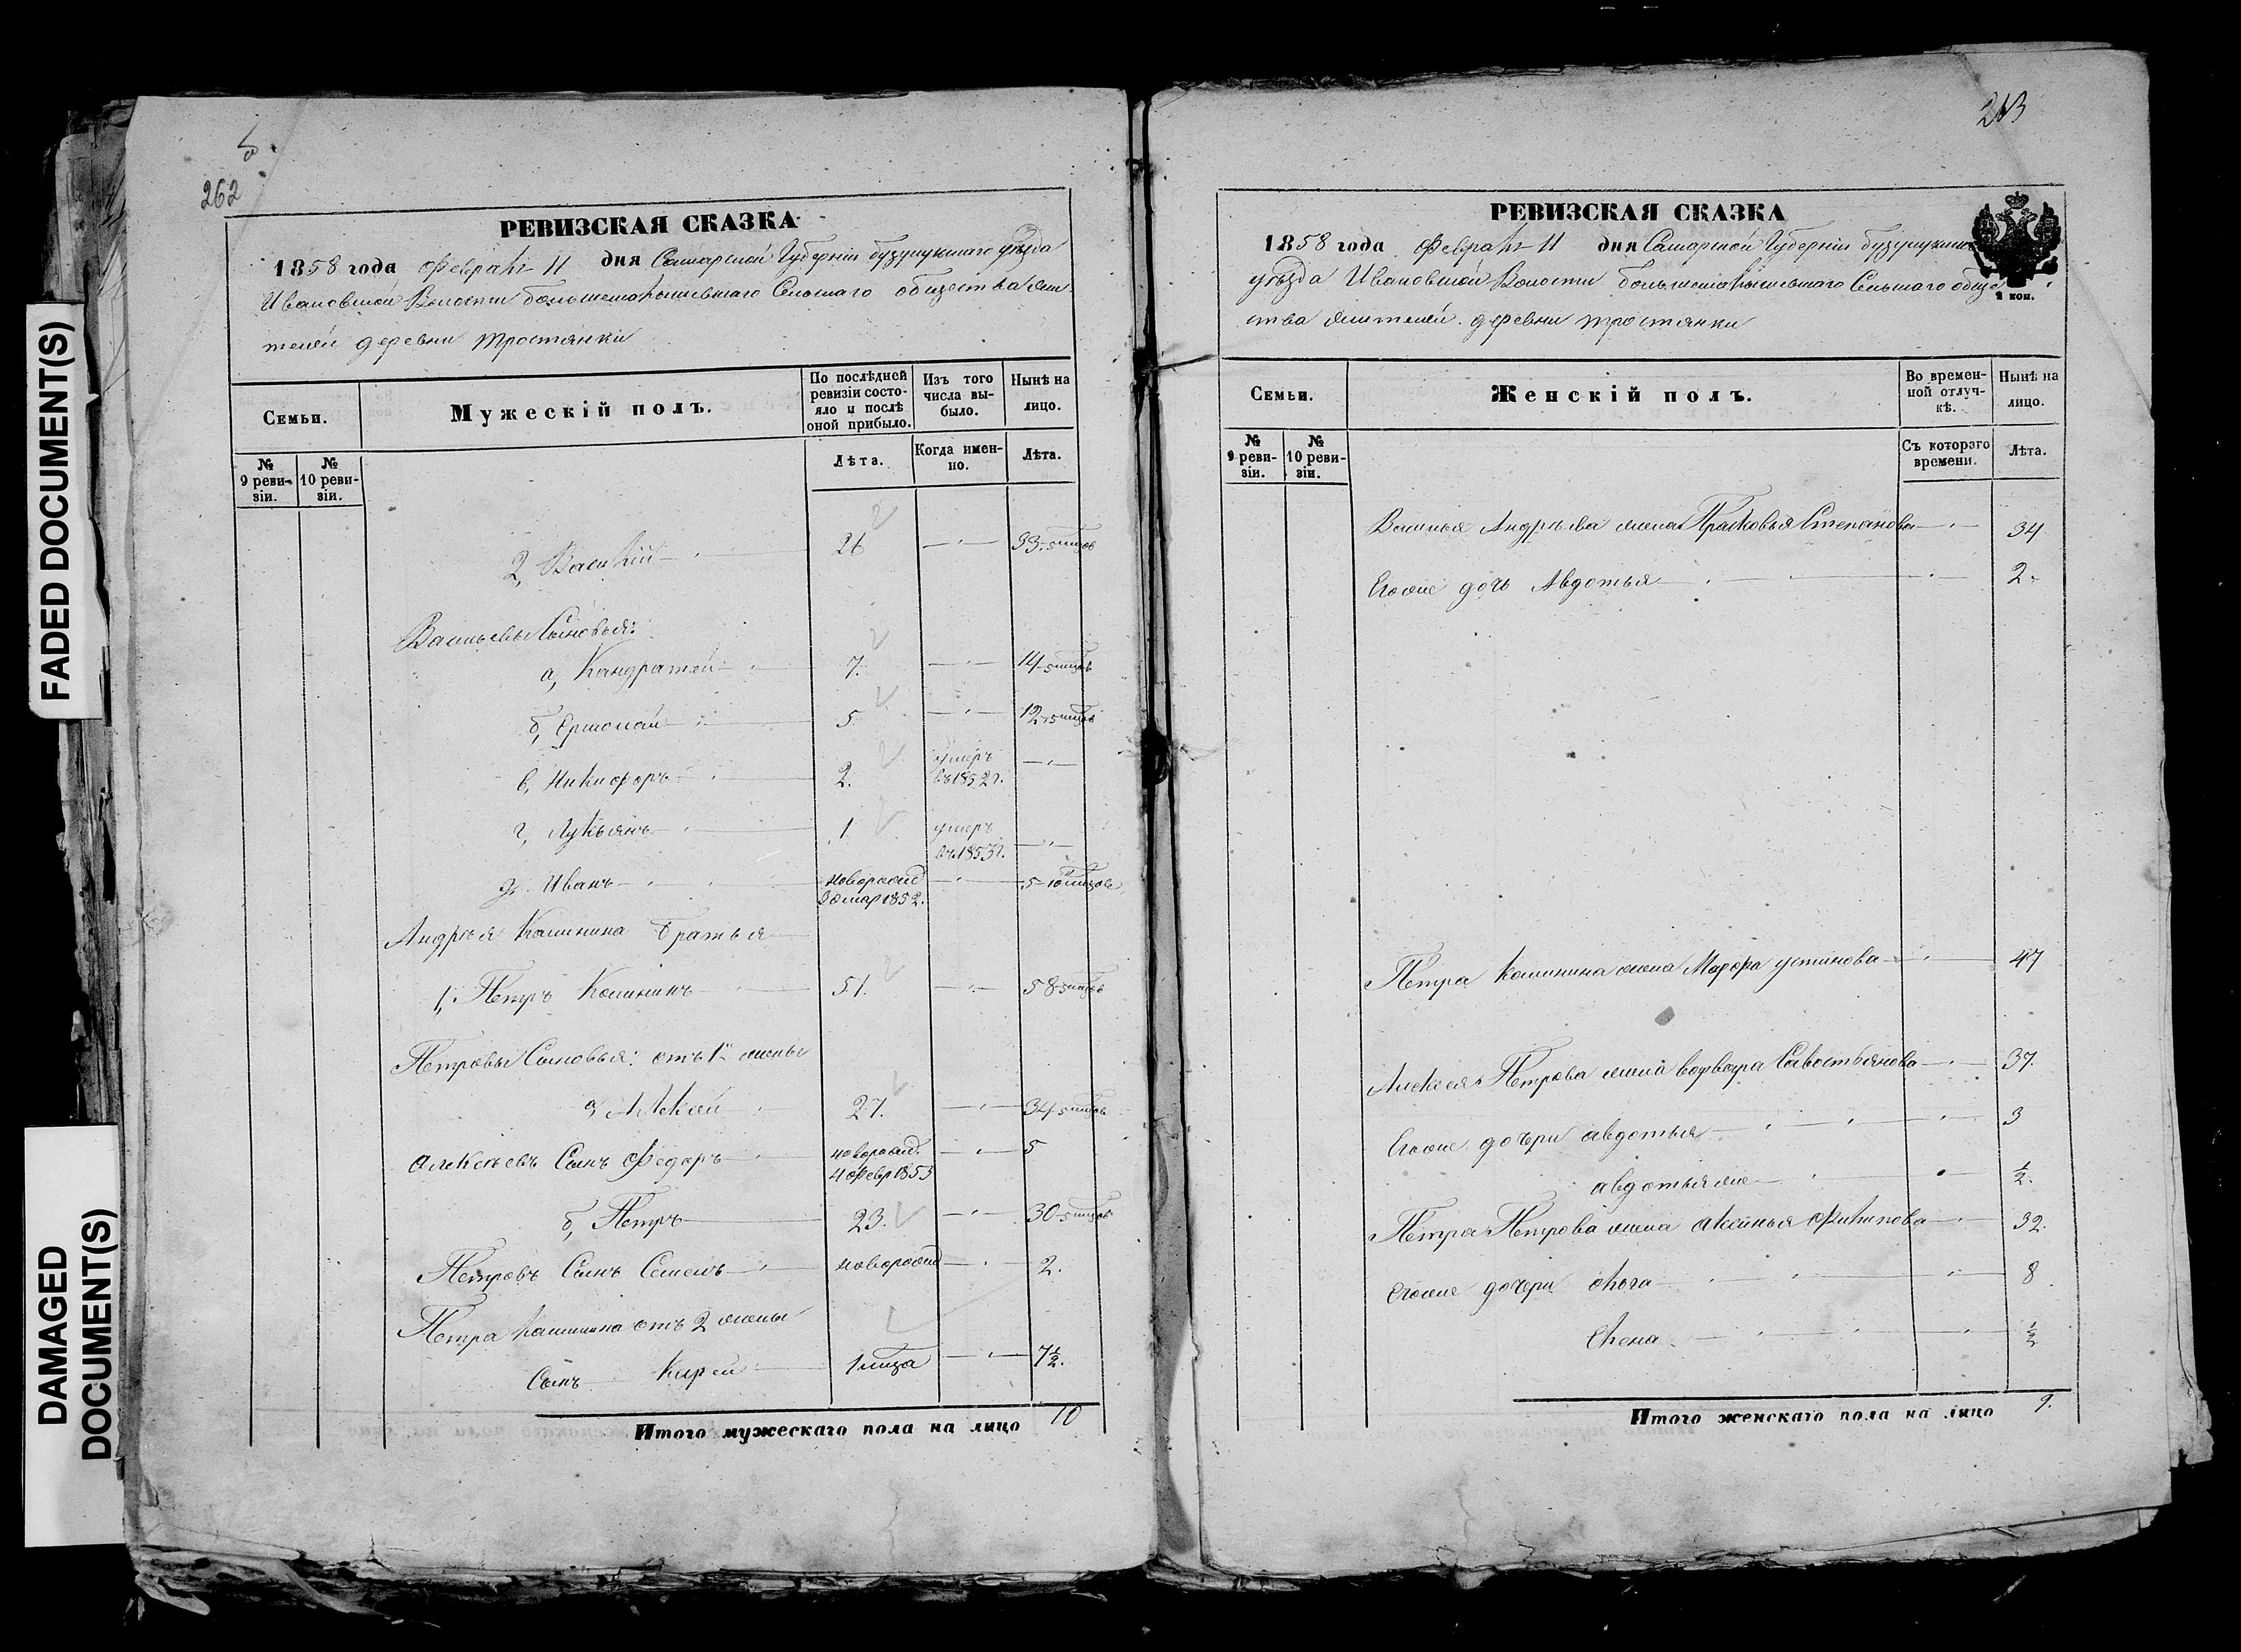 FADED DOCUMENT(S)
DAMAGED
DOCUMENT(S)
262
РЕВИЗСКАЯ СКАЗКА
1858 года Февраля 11 дня Самарской Губерніи бузулукскаго уѣзда
Ивановской Волости Сельскаго общества жи-
телей деревни Тростянки
Семьи.
Мужескій полъ.
По послѣдней ревизіи состо-
яло и послѣ оной прибыло.
Изъ того числа вы-
было.
Нынѣ на лицо.
№ 9 реви-
зіи.
№ 10 реви-
зіи.
Лѣта.
Когда имен-
но.
Лѣта.
2, Василій 26 33-5 мѣсцов
Васильевы Сыновья:
а, Кандратей 7. 14-5 мѣсцов
б, Ермолай 5 12-5 мѣсцов
в, Никифоръ 2. умеръ въ 1852 г.
г, Лукьянъ 1 умеръ въ 1853 г.
д. Иванъ новорожд 1852. 5-10 мѣсцов
Андрея Калинина братья
1, Петръ Калининъ 51. 58-5 мѣсцов
Петровы Сыновья: отъ 1й жены
а, Алексей 27. 34-5 мѣсцов
Алексѣевъ Сынъ Федоръ новорожд. 4 Февр 1853 5
б, Петръ 23. 30-5 мѣсцов
Петровъ Сынъ Семенъ новорожд 2.
Петра Калинина отъ 2 жены
Сынъ Карпей 1 мѣсца 7½.
Итого мужескаго пола на лицо 10
РЕВИЗСКАЯ СКАЗКА
1858 года Февраля 11 дня Самарской Губерніи
уѣзда Ивановской Волости Сельскаго обще
ства жителей деревни тростянки
2 коп.
Семьи.
Женскій полъ.
Во времен-
ной отлуч-
кѣ.
Нынѣ на лицо.
№ 9 реви-
зіи.
№ 10 реви-
зіи.
Съ котораго времени.
Лѣта.
Василья Андрѣева жена Прасковья Степанова 34
Егоже дочь Авдотья 2
Петра Калинина жена Марфа устинова 47
Алексея Петрова жена Савостьянова 37.
Егоже дочери авдотья 3
авдотья же ½.
Петра Петрова жена аксинья Филипова 32.
Егоже дочери 8
Елена ½
Итого женскаго пола на лицо 9.